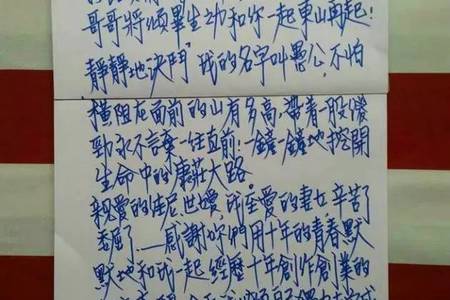 哥哥將傾畢生功和你一起東山再起!
靜靜地決鬥,我的名字叫愚公,不怕
橫阻在面前的山有多高,帶着一股傻
勁永不言棄一往直前;一鏟一鏟地挖開
生命中的康莊大路。
親愛的佳尼,世嬡,我至愛的妻女,辛苦了
委屈了……感謝妳們用十年的青春默
默地和我一起經歷十年創作創業的